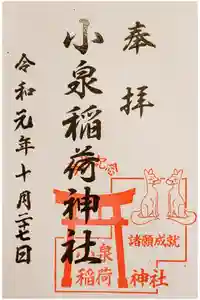 奉拝
小泉稲荷神社
令和元年十月二七日
諸願成就
小泉
稲荷神社